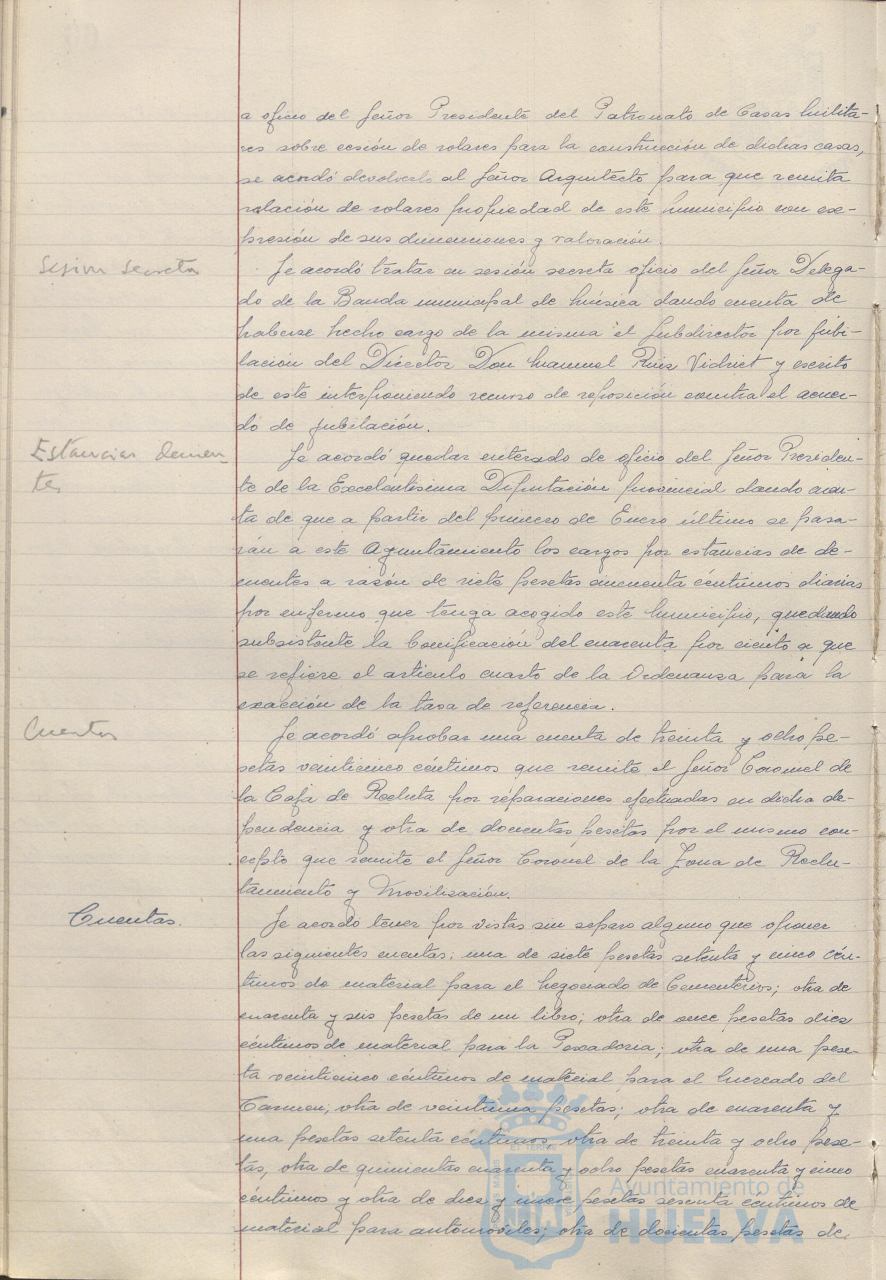 a oficio del Señor Presidente del Patronato de Casas Milita-
res sobre cesión de solares para la construcción de dichas casas,
se acordó devolverlo al Señor Arquitecto para que remita
relación de solares propiedad de este Municipio con ex-
presión de sus dimensiones y valoración.
Sesion secreta
Se acordó tratar en sesión secreta oficio del Señor Delega-
do de la Banda municipal de Música dando cuenta de
haberse hecho cargo de la misma el Subdirector por jubi-
lación del Director Don Manuel Ruiz Vidriet y escrito
de este interponiendo recurso de reposición contra el acuer-
do de jubilación.
Estancias demen-
tes
Se acordó quedar enterado de oficio del Señor Presiden-
te de la Excelentísima Diputación provincial dando cuen-
ta de que a partir del primero de Enero último se pasa-
rán a este Ayuntamiento los cargos por estancias de de-
mentes a razón de siete pesetas cincuenta céntimos diarias
por enfermo que tenga acogido este Municipio, quedando
subsistente la bonificación del cuarenta por ciento a que
se refiere el artículo cuarto de la Ordenanza para la
exacción de la tasa de referencia.
Cuentas
Se acordó aprobar una cuenta de treinta y ocho pe-
setas veinticinco céntimos que remite el Señor Coronel de
la Caja de Recluta por reparaciones efectuadas en dicha de-
pendencia y otra de doscientas pesetas por el mismo con-
cepto que remite el Señor Coronel de la Zona de Reclu-
tamiento y Movilización.
Cuentas.
Se acordo tener por vistas sin reparo alguno que oponer
las siguientes cuentas: una de siete pesetas setenta y cinco cén-
timos de material para el Negociado de Cementerios; otra de
cuarenta y seis pesetas de un libro; otra de once pesetas diez
céntimos de material para la Pescaderia; otra de una pese-
ta veinticinco céntimos de material para el Mercado del
Carmen; otra de veintiuna pesetas; otra de cuarenta y
una pesetas setenta céntimos, otra de treinta y ocho pese-
tas, otra de quinientas cuarenta y ocho pesetas cuarenta y cinco
céntimos y otra de diez y nueve pesetas sesenta céntimos de
material para automóviles; otra de doscientas pesetas de
Ayuntamiento de
HUELVA